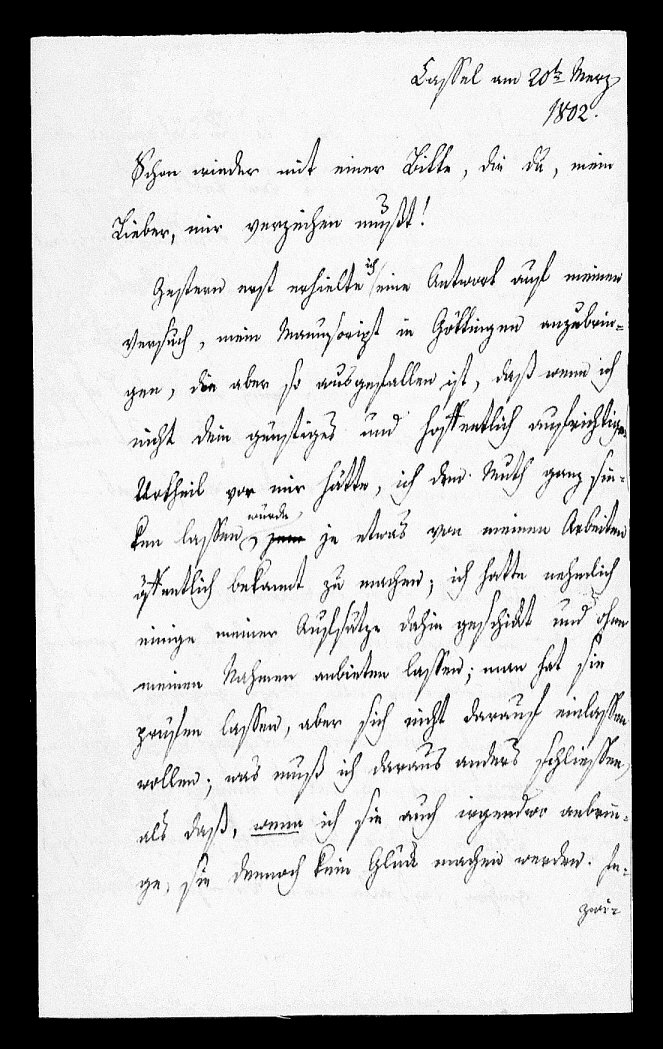 Cassel am 20ten Merz
1802.
Schon wieder mit einer Bitte, die du, mein
Lieber, mir verzeihen mußt!
Gestern erst erhielte ich eine Antwort auf meinen
Versuch, mein Manuscript in Göttingen anzubrin=
gen, die aber so ausgefallen ist, daß wenn ich
nicht dein günstiges und hoffentlich aufrichtiges
Urtheil vor mir hätte, ich den Muth ganz sin=
ken lassen würde, je etwas von meinen Arbeiten
öffentlich bekannt zu machen; ich hatte nehmlich
einige meiner Aufsätze dahin geschickt und ohne
meinen Nahmen anbieten lassen; man hat sie
prüfen lassen, aber sich nicht darauf einlassen
wollen; was muß ich daraus anders schliessen,
als daß, wenn ich sie auch irgendwo anbrin=
ge, sie dennoch kein Glück machen werden. In=
zwi=